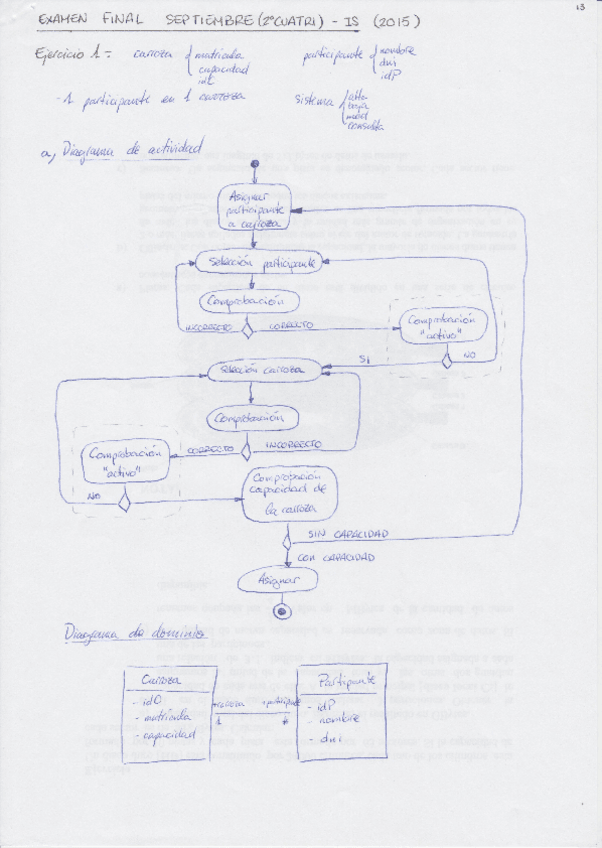 13
EXAMEN FINAL SEPTIEMBRE (2ºCUATRI) - IS (2015)
Ejercicio 1:- carroza matricula participante nombre
capacidad dni
idP
- 1 participante en 1 carroza sistema alta
baja
mod
consulta
a, Diagrama de actividad
Asignar
participante
a carroza
Selección participante
Comprobación
INCORRECTO CORRECTO
Comprobación
"activo"
SI NO
Selección carroza
Comprobación
CORRECTO INCORRECTO
Comprobación
"activo"
NO
Comprobación
capacidad de
la carroza
SIN CAPACIDAD
CON CAPACIDAD
Asignar
Diagrama de dominio
Carroza
- matricula
- capacidad
+carroza
1
*
- idP
- nombre
- dni